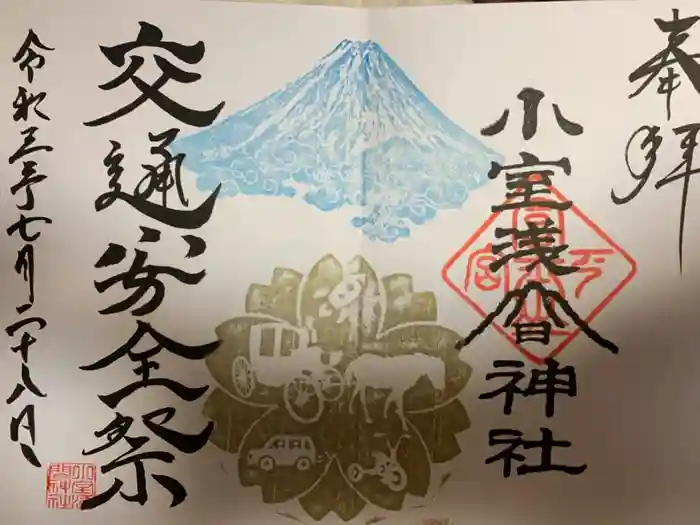 奉拝
小室浅間神社
交通安全祭
令和三年七月二十八日